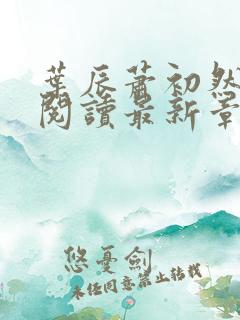 葉辰蕭初然
閱讀最新章
悠憂劍
未經同意禁止轉載